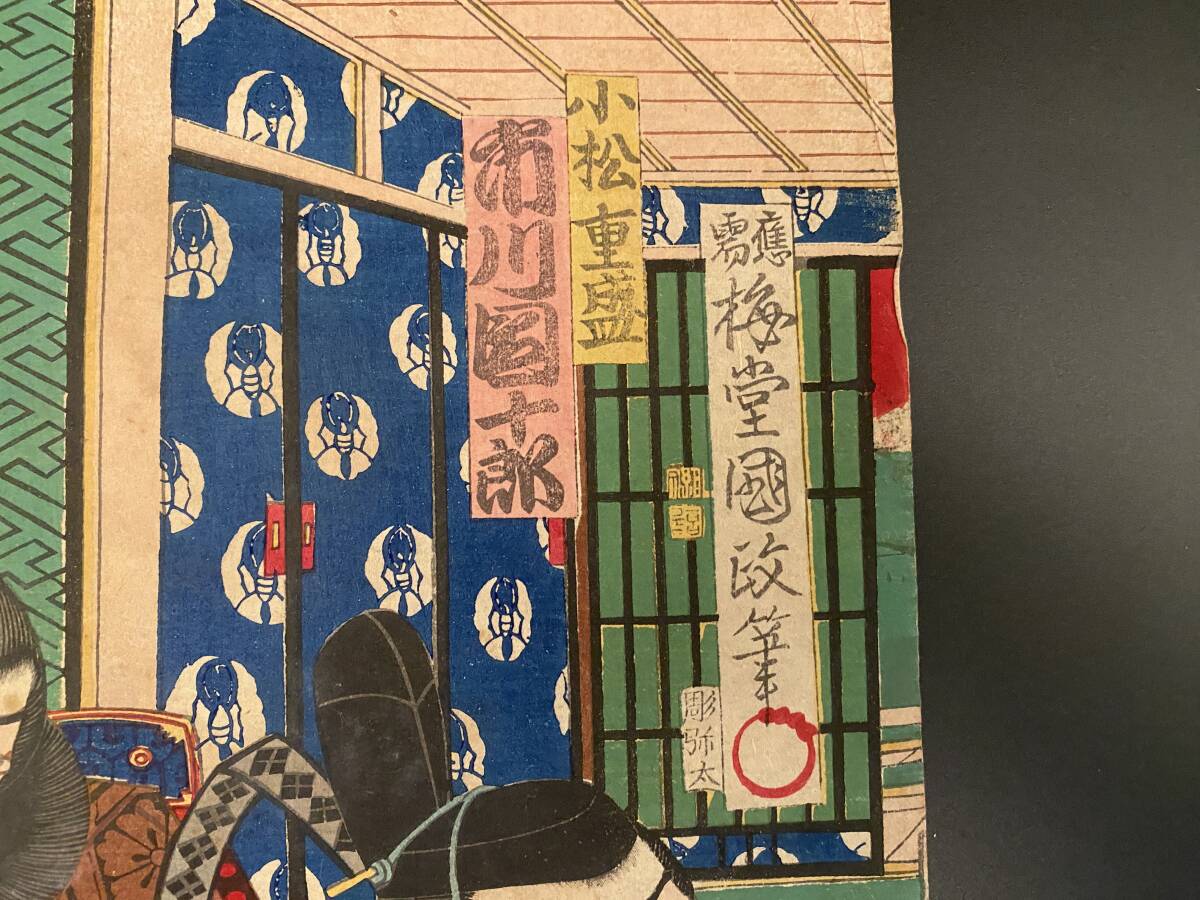 應需
梅堂國政筆
彫弥太
小松重盛
市川団十郎